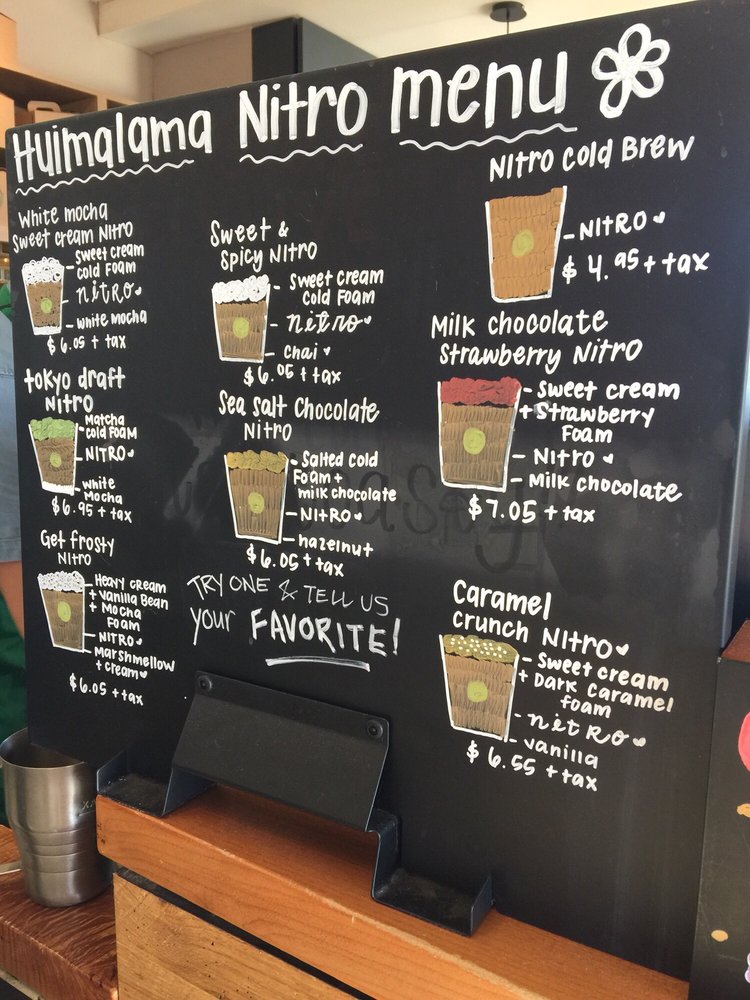 Huimalama Nitro menu
White mocha
Sweet cream Nitro
Sweet cream
cold foam
nitro
White mocha
$6.05 + tax
tokyo draft
Nitro
Matcha
cold foam
Nitro
white
Mocha
$6.95 + tax
Get frosty
Nitro
Heavy cream
+ Vanilla Bean
+ Mocha
Foam
Nitro
Marshmellow
+ cream
$6.05 + tax
Sweet &
Spicy Nitro
Sweet cream
Cold Foam
nitro
Chai
$6.05 + tax
Sea salt Chocolate
Nitro
Salted cold
Foam +
milk chocolate
Nitro
hazelnut
$6.05 + tax
TRY ONE & TELL US
your FAVORITE!
Nitro Cold Brew
Nitro
$4.95 + tax
Milk chocolate
Strawberry Nitro
Sweet cream
+ Strawberry
Foam
Nitro
Milk chocolate
$7.05 + tax
Caramel
crunch Nitro
Sweet cream
+ Dark Caramel
foam
nitro
vanilla
$6.55 + tax